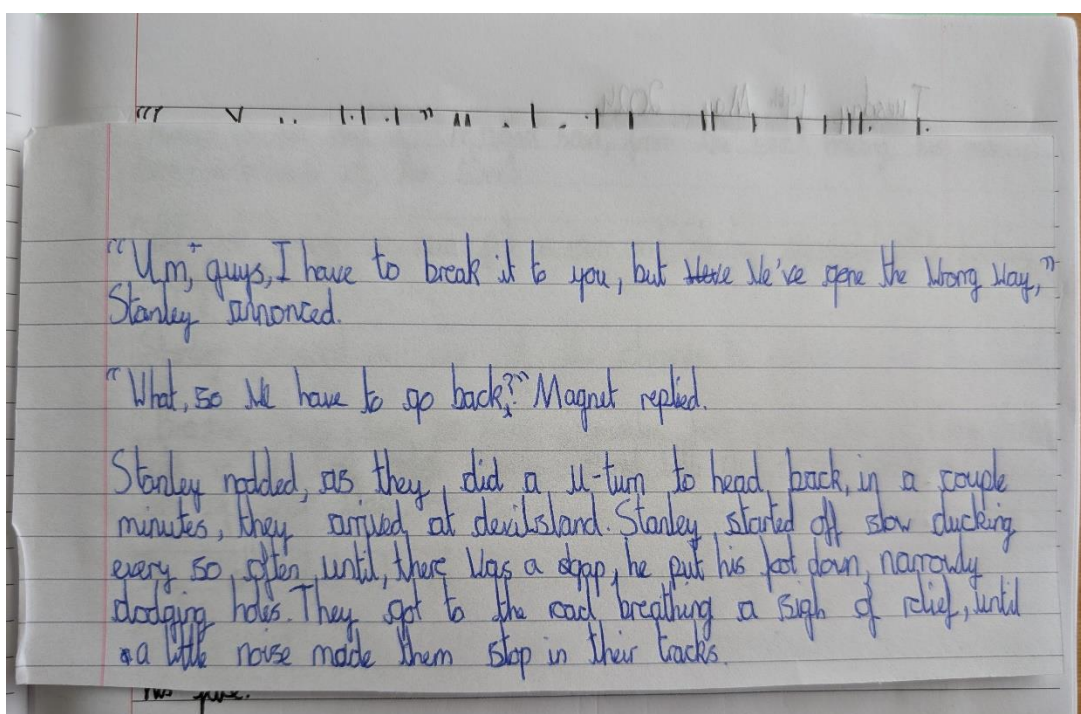 "Um, guys, I have to break it to you, but We've gone the Wrong Way,"
Stanley annonced.
"What, so We have to go back?" Magnet replied.
Stanley nodded, as they did a u-turn to head back, in a couple
minutes, they arrived at devilsland. Stanley started off slow ducking
every so often until, there Was a gap, he put his foot down, narrowly
dodging holes. They got to the road breathing a sigh of relief, until
a little noise made them stop in their tracks.